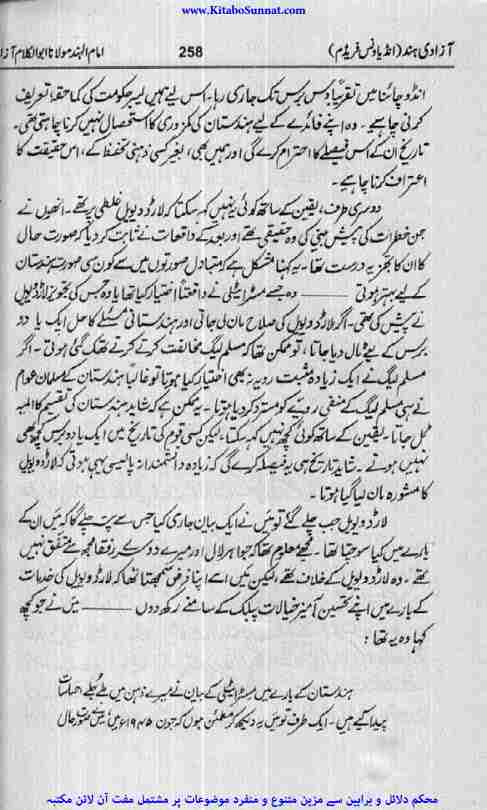 www.KitaboSunnat.com
آزادی ہند (انڈیا ونس فریڈم) 258 امام الہند مولانا ابوالکلام آزا
انڈو چائنا میں تقریباً دس برس تک جاری رہا۔ اس لیے ہمیں لیبر حکومت کی کما حقہٗ تعریف
کرنی چاہیے۔ وہ اپنے فائدے کے لیے ہندستان کی کمزوری کا استحصال نہیں کرنا چاہتی تھی۔
تاریخ ان کے اس فیصلے کا احترام کرے گی اور ہمیں بھی، بغیر کسی ذہنی تحفظ کے، اس حقیقت کا
اعتراف کرنا چاہیے۔
دوسری طرف، یقین کے ساتھ کوئی یہ نہیں کہہ سکتا کہ لارڈ ویول غلطی پر تھے۔ انھوں نے
جن خطرات کی پیش بینی کی وہ حقیقی تھے اور بعد کے واقعات نے ثابت کر دیا کہ صورت حال
کا ان کا تجزیہ درست تھا۔ یہ کہنا مشکل ہے کہ متبادل صورتوں میں سے کون سی صورت ہندستان
کے لیے بہتر ہوتی ــــــــ وہ جسے مسٹر ایٹلی نے واقعتاً اختیار کیا تھا یا وہ جس کی تجویز لارڈ ویول
نے پیش کی تھی۔ اگر لارڈ ویول کی صلاح مان لی جاتی اور ہندستانی مسئلے کا حل ایک یا دو
برس کے لیے ٹال دیا جاتا، تو ممکن تھا کہ مسلم لیگ مخالفت کرتے کرتے تھک گئی ہوتی۔ اگر
مسلم لیگ نے ایک زیادہ مثبت رویہ نہ بھی اختیار کیا ہوتا تو غالباً ہندستان کے مسلمان عوام
نے ہی مسلم لیگ کے منفی رویّے کو مسترد کر دیا ہوتا۔ یہ ممکن ہے کہ شاید ہندستان کی تقسیم کا المیہ
ٹل جاتا۔ یقین کے ساتھ کوئی کچھ نہیں کہہ سکتا، لیکن کسی قوم کی تاریخ میں ایک یا دو برس کچھ بھی
نہیں ہوتے۔ شاید تاریخ ہی یہ فیصلہ کرے گی کہ زیادہ دانشمندانہ پالیسی یہی ہوتی کہ لارڈ ویول
کا مشورہ مان لیا گیا ہوتا۔
لارڈ ویول جب چلے گئے تو میں نے ایک بیان جاری کیا جس سے پتہ چلے گا کہ میں ان کے
بارے میں کیا سوچتا تھا۔ مجھے معلوم تھا کہ جواہر لال اور میرے دوسرے رفقا مجھ سے متفق نہیں
تھے۔ وہ لارڈ ویول کے خلاف تھے، لیکن میں اسے اپنا فرض سمجھتا تھا کہ لارڈ ویول کی خدمات
کے بارے میں اپنے تحسین آمیز خیالات پبلک کے سامنے رکھ دوں ــــــــ میں نے جو کچھ
کہا وہ یہ تھا:
ہندستان کے بارے میں مسٹر ایٹلی کے بیان نے میرے ذہن میں ملے جلے احساسات
پیدا کیے ہیں۔ ایک طرف تو میں یہ دیکھ کر مطمئن ہوں کہ جون ۱۹۴۵ء میں صورت حال
محکم دلائل و براہین سے مزین متنوع و منفرد موضوعات پر مشتمل مفت آن لائن مکتبہ